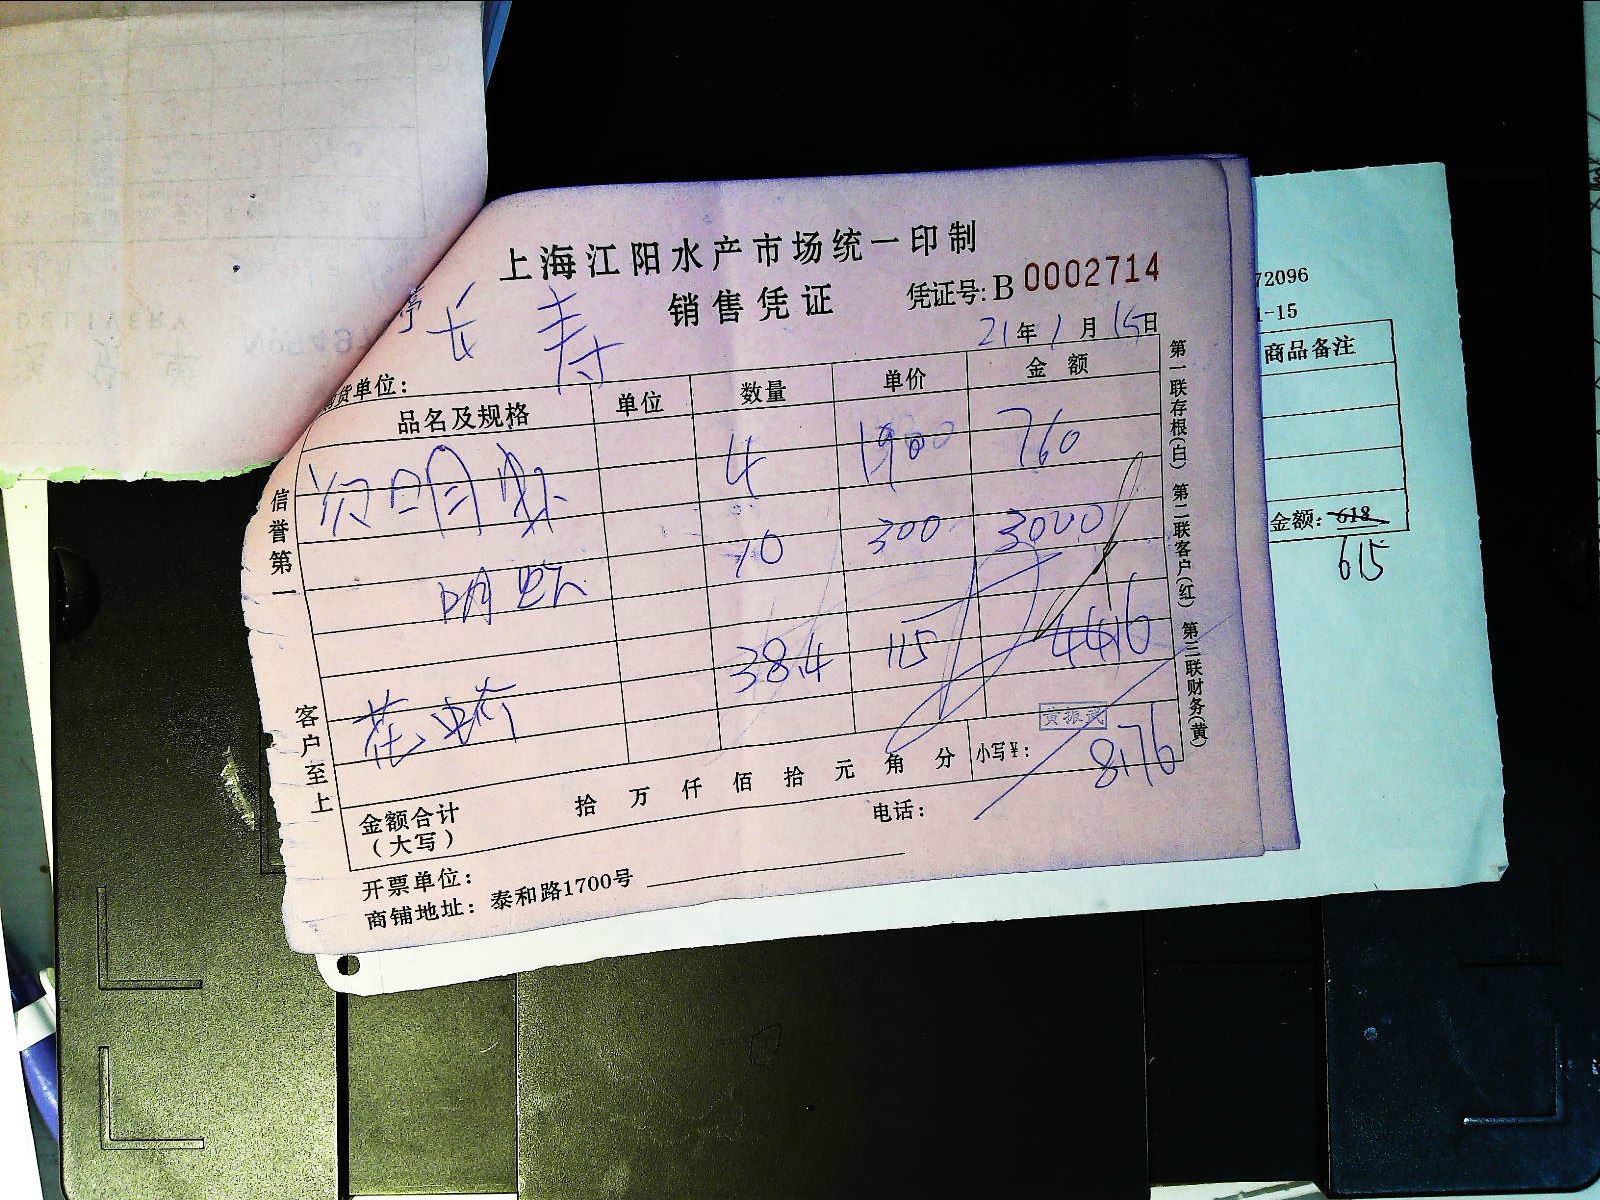 上海江阳水产市场统一印制
销售凭证
凭证号: B 0002714
长寿
21年1月15日
货单位:
品名及规格 单位 数量 单价 金额
明虾 4 190 760
明虾 10 300 3000
花虾 38.4 115 4416
黄振武
金额合计
(大写)
拾 万 仟 佰 拾 元 角 分 小写¥: 8176
开票单位:
电话:
商铺地址: 泰和路1700号
信誉第一
客户至上
第一联存根(白) 第二联客户(红) 第三联财务(黄)
72096
1-15
商品备注
金额: 618
615
DELIVERY